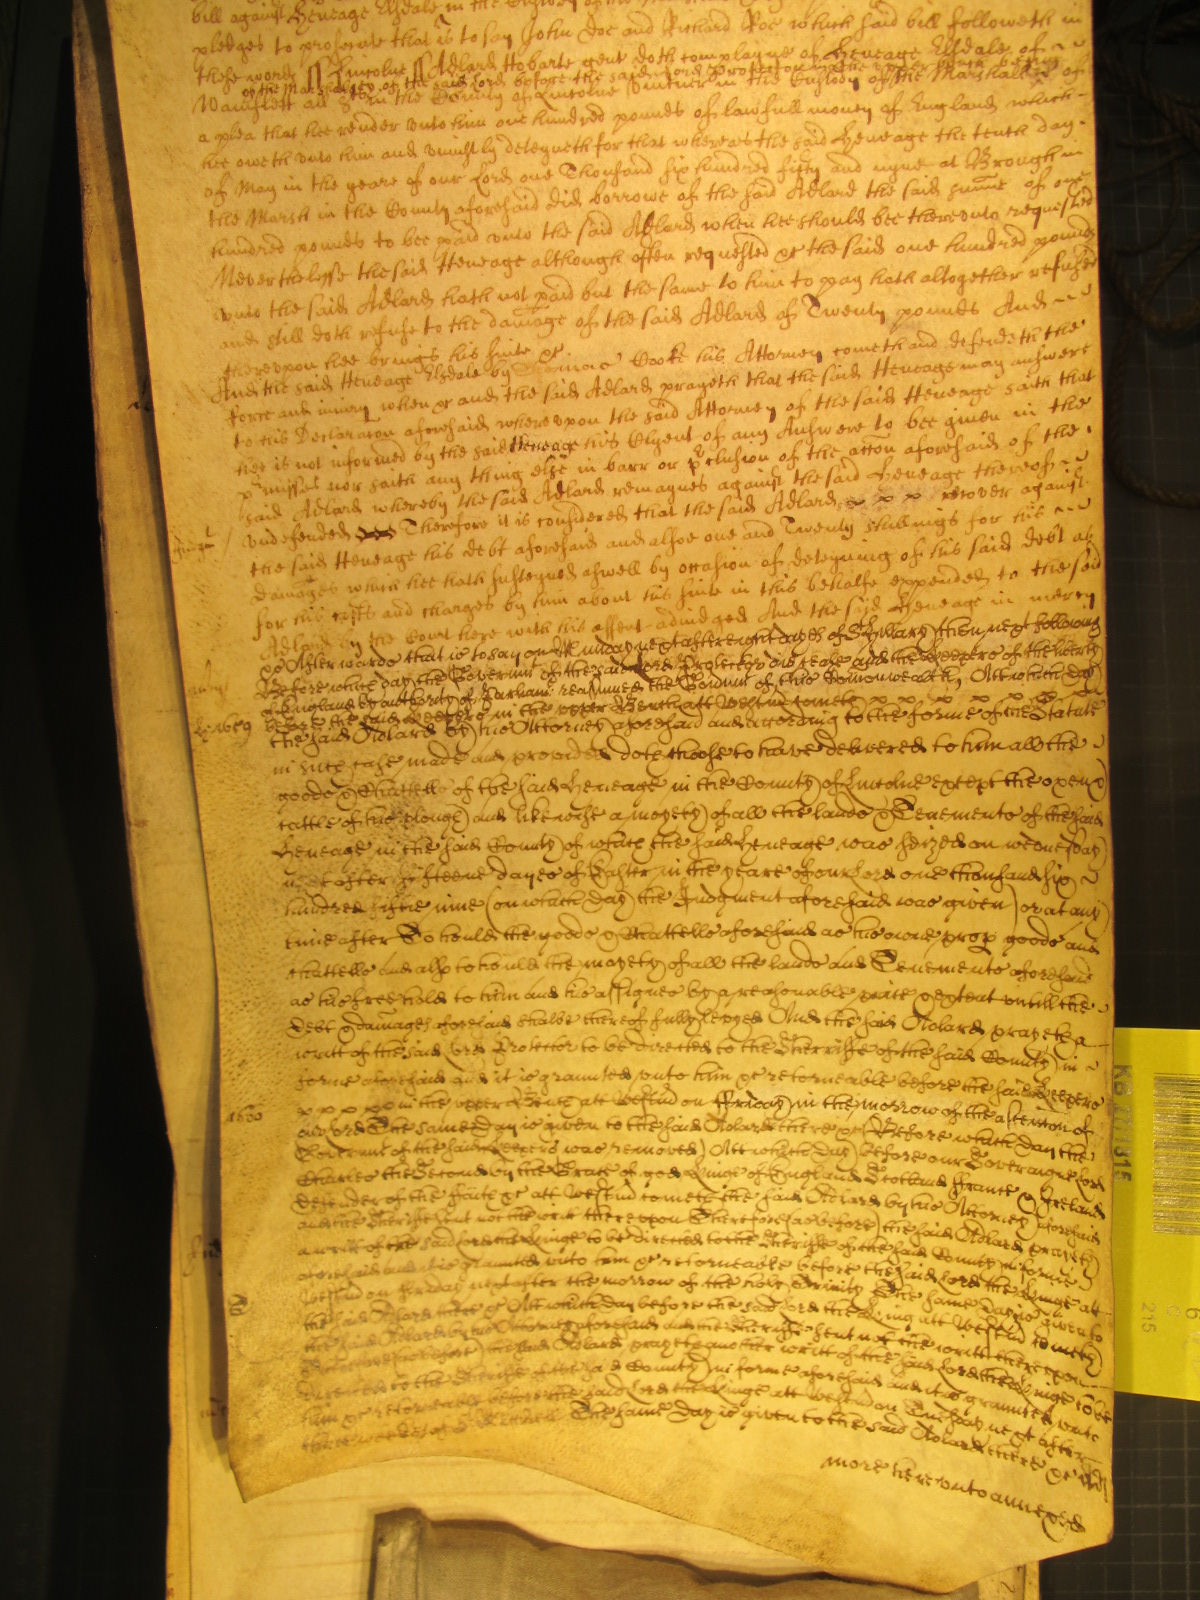 bill against Heneage Elsdale in the Custody of the
pledges to prosecute that is to say John Doe and Richard Roe which said bill followeth in
these words ss Lincolne ss Adlard Hobarte gent doth complayne of Heneage Elsdale of
of the Marshalsey of the said Lord before the said Lord Protector in the upper bench beeing
Wainflett in the County of Lincolne Vintner in the Custody of the Marshall of
a plea that hee render unto him one hundred pounds of lawfull money of England which
hee oweth unto him and uniustly deteyneth for that whereas the said Heneage the tenth day
of May in the yeare of our Lord one Thousand six hundred fifty and nyne at Brough in
the Marsh in the County aforesaid did borrowe of the said Adlard the said summe of one
hundred pounds to bee paid unto the said Adlard when hee should bee thereunto requested
Neverthelesse the said Heneage although often requested &c the said one hundred pounds
unto the said Adlard hath not paid but the same to him to pay hath altogether refused
and still doth refuse to the damage of the said Adlard of Twenty pounds And
thereupon hee brings his suite &c
And the said Heneage Elsdale by Cooke his Attorney cometh and defendeth the
force and iniury when &c and the said Adlard prayeth that the said Heneage may answere
to his Declaration aforesaid whereupon the said Attorney of the said Heneage saith that
hee is not informed by the said Heneage his Clyent of any Answere to bee given in the
p'misses nor saith any thing else in barr or p'clusion of the accon aforesaid of the
said Adlard whereby the said Adlard remaynes against the said Heneage thereof
undefended Therefore it is considered that the said Adlard x x x recover against
the said Heneage his debt aforesaid and alsoe one and Twenty shillings for his
damages which hee hath susteyned aswell by occasion of deteyning of his said debt as
for his costs and charges by him about his suite in this behalfe expended to the said
Adlard by the Court here with his assent adiudged And the said Heneage in mercy
&c Afterwards that is to say on Munday next after eight dayes of St Hillary then next following
Before which day the Governmt of the said Lord Protector did cease and the Keepers of the liberty
of England by authority of Parliamt reassumed the Governmt of this Comonwealth, Att which day
before the said Keepers in the upper Bench att Westm cometh x x x x x x
the said Adlard by his Attorney aforesaid and according to the forme of the Statute
in such case made and provided doth choose to have delivered to him all the
goods & Chattells of the said Heneage in the County of Lincolne except the oxen &
cattle of his plough and likewise a moyety of all the lands & Tenements of the said
Heneage in the said County of which the said Heneage was seized on wednesday
next after fifteene dayes of Easter in the yeare of our Lord one thousand six
hundred fiftie nine (on which day the Judgment aforesaid was given) or at any
time after To hould the goods & Chattells aforesaid as his owne prop goods and
chattells and also to hould the moyety of all the lands and Tenements aforesaid
as his free hold to him and his assignes by a reasonable price & extent untill the
debt & damages aforesaid shalbe thereof fully levyed And the said Adlard prayeth a
writt of the said Lord Protector to be directed to the Sherriffe of the said County in
forme aforesaid and it is graunted unto him &c retorneable before the said Keepers
x x x x x in the upper Bench att Westm on Friday in the morrow of the assention of
our Lord The same day is given to the said Adlard there &c Before which day the
Governmt of the said Keepers was removed Att which day before our Soveraigne Lord
Charles the Second by the Grace of god Kinge of England Scotland Ffrance & Ireland
defender of the faith &c att Westm cometh the said Adlard by his Attorney aforesaid
and the Sheriffe sent not the writt thereupon Therefore (as before) the said Adlard prayeth
a writt of the said Lord the Kinge to be directed to the Sheriffe of the said County in forme
aforesaid and it is graunted unto him &c retorneable before the said Lord the Kinge att
Westm on Friday next after the morrow of the holy Trinity The same day is given to
the said Adlard there &c Att which day before the said Lord the King att Westm cometh
the said Adlard by his Attorney aforesaid and the Sheriffe sent not the writt thereupon
Therefore (as before) the said Adlard prayeth another writt of the said Lord the Kinge to be
directed to the Sheriffe of the said County in forme aforesaid and it is graunted unto
him &c retorneable before the said Lord the Kinge att Westm on Tuesday next after
three weekes of St Michael The same day is given to the said Adlard there &c
more hereunto annexed
1659
1660
215